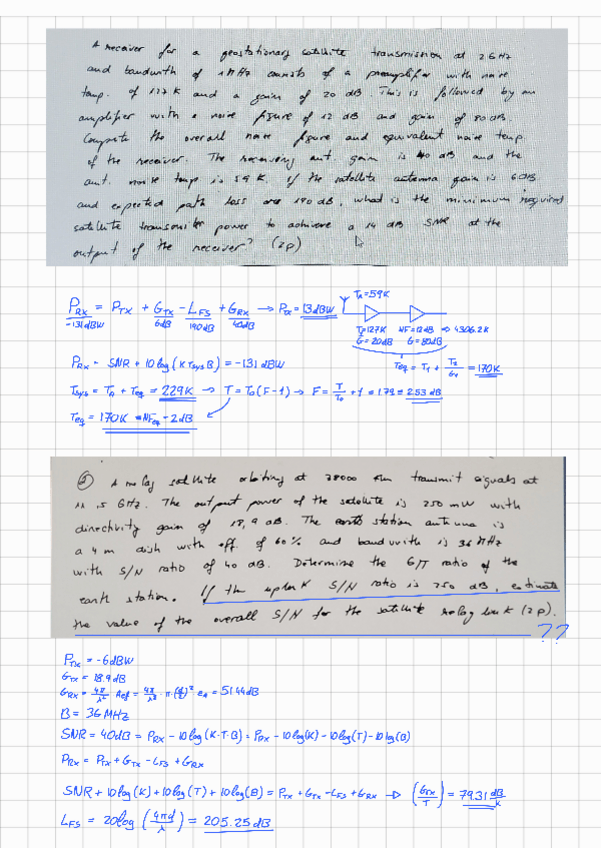 A receiver for a geostationary satellite transmission at 2 GHz
and bandwith of 1 MHz consists of a preamplifier with noise
temp. of 127 K and a gain of 20 dB. This is followed by an
amplifier with a noise figure of 12 dB and gain of 80 dB.
Compute the overall noise figure and equivalent noise temp.
of the receiver. The receiving ant. gain is 40 dB and the
ant. noise temp is 59 K. If the satellite antenna gain is 6 dB
and expected path loss are 190 dB, what is the minimum required
satellite transmitter power to achieve a 14 dB SNR at the
output of the receiver? (2p)
P_RX = P_TX + G_TX - L_FS + G_RX → P_TX = 13 dBW
-131 dBW 6dB 190dB 40dB
T_A = 59K
T=127K NF=12dB ⇒ 4306.2K
G=20dB G=80dB
T_eq = T_1 + T_2/G_1 = 170K
P_RX - SNR + 10log(K T_sys B) = -131 dBW
T_sys = T_A + T_eq = 229K → T = T_0(F-1) → F = T/T_0 + 1 = 1.79 = 2.53 dB
T_eq = 170K ⇒ NF_eq = 2dB
② A relay satellite orbiting at 38000 km transmit signals at
11.5 GHz. The output power of the satellite is 250 mW with
directivity gain of 18,9 dB. The earth station antenna is
a 4 m dish with eff. of 60% and bandwith is 36 MHz
with S/N ratio of 40 dB. Determine the G/T ratio of the
earth station. If the uplink S/N ratio is 250 dB, estimate
the value of the overall S/N for the satellite relay link (2p).
??
P_TX = -6dBW
G_TX = 18.9dB
G_RX = 4π/λ² · A_ef = 4π/λ² · π·(d/2)² · e_a = 51.44dB
B = 36 MHz
SNR = 40dB = P_RX - 10log(K·T·B) = P_RX - 10log(K) - 10log(T) - 10log(B)
P_RX = P_TX + G_TX - L_FS + G_RX
SNR + 10log(K) + 10log(T) + 10log(B) = P_TX + G_TX - L_FS + G_RX → (G_RX/T) = 79.31 dB/K
L_FS = 20log(4πd/λ) = 205.25dB